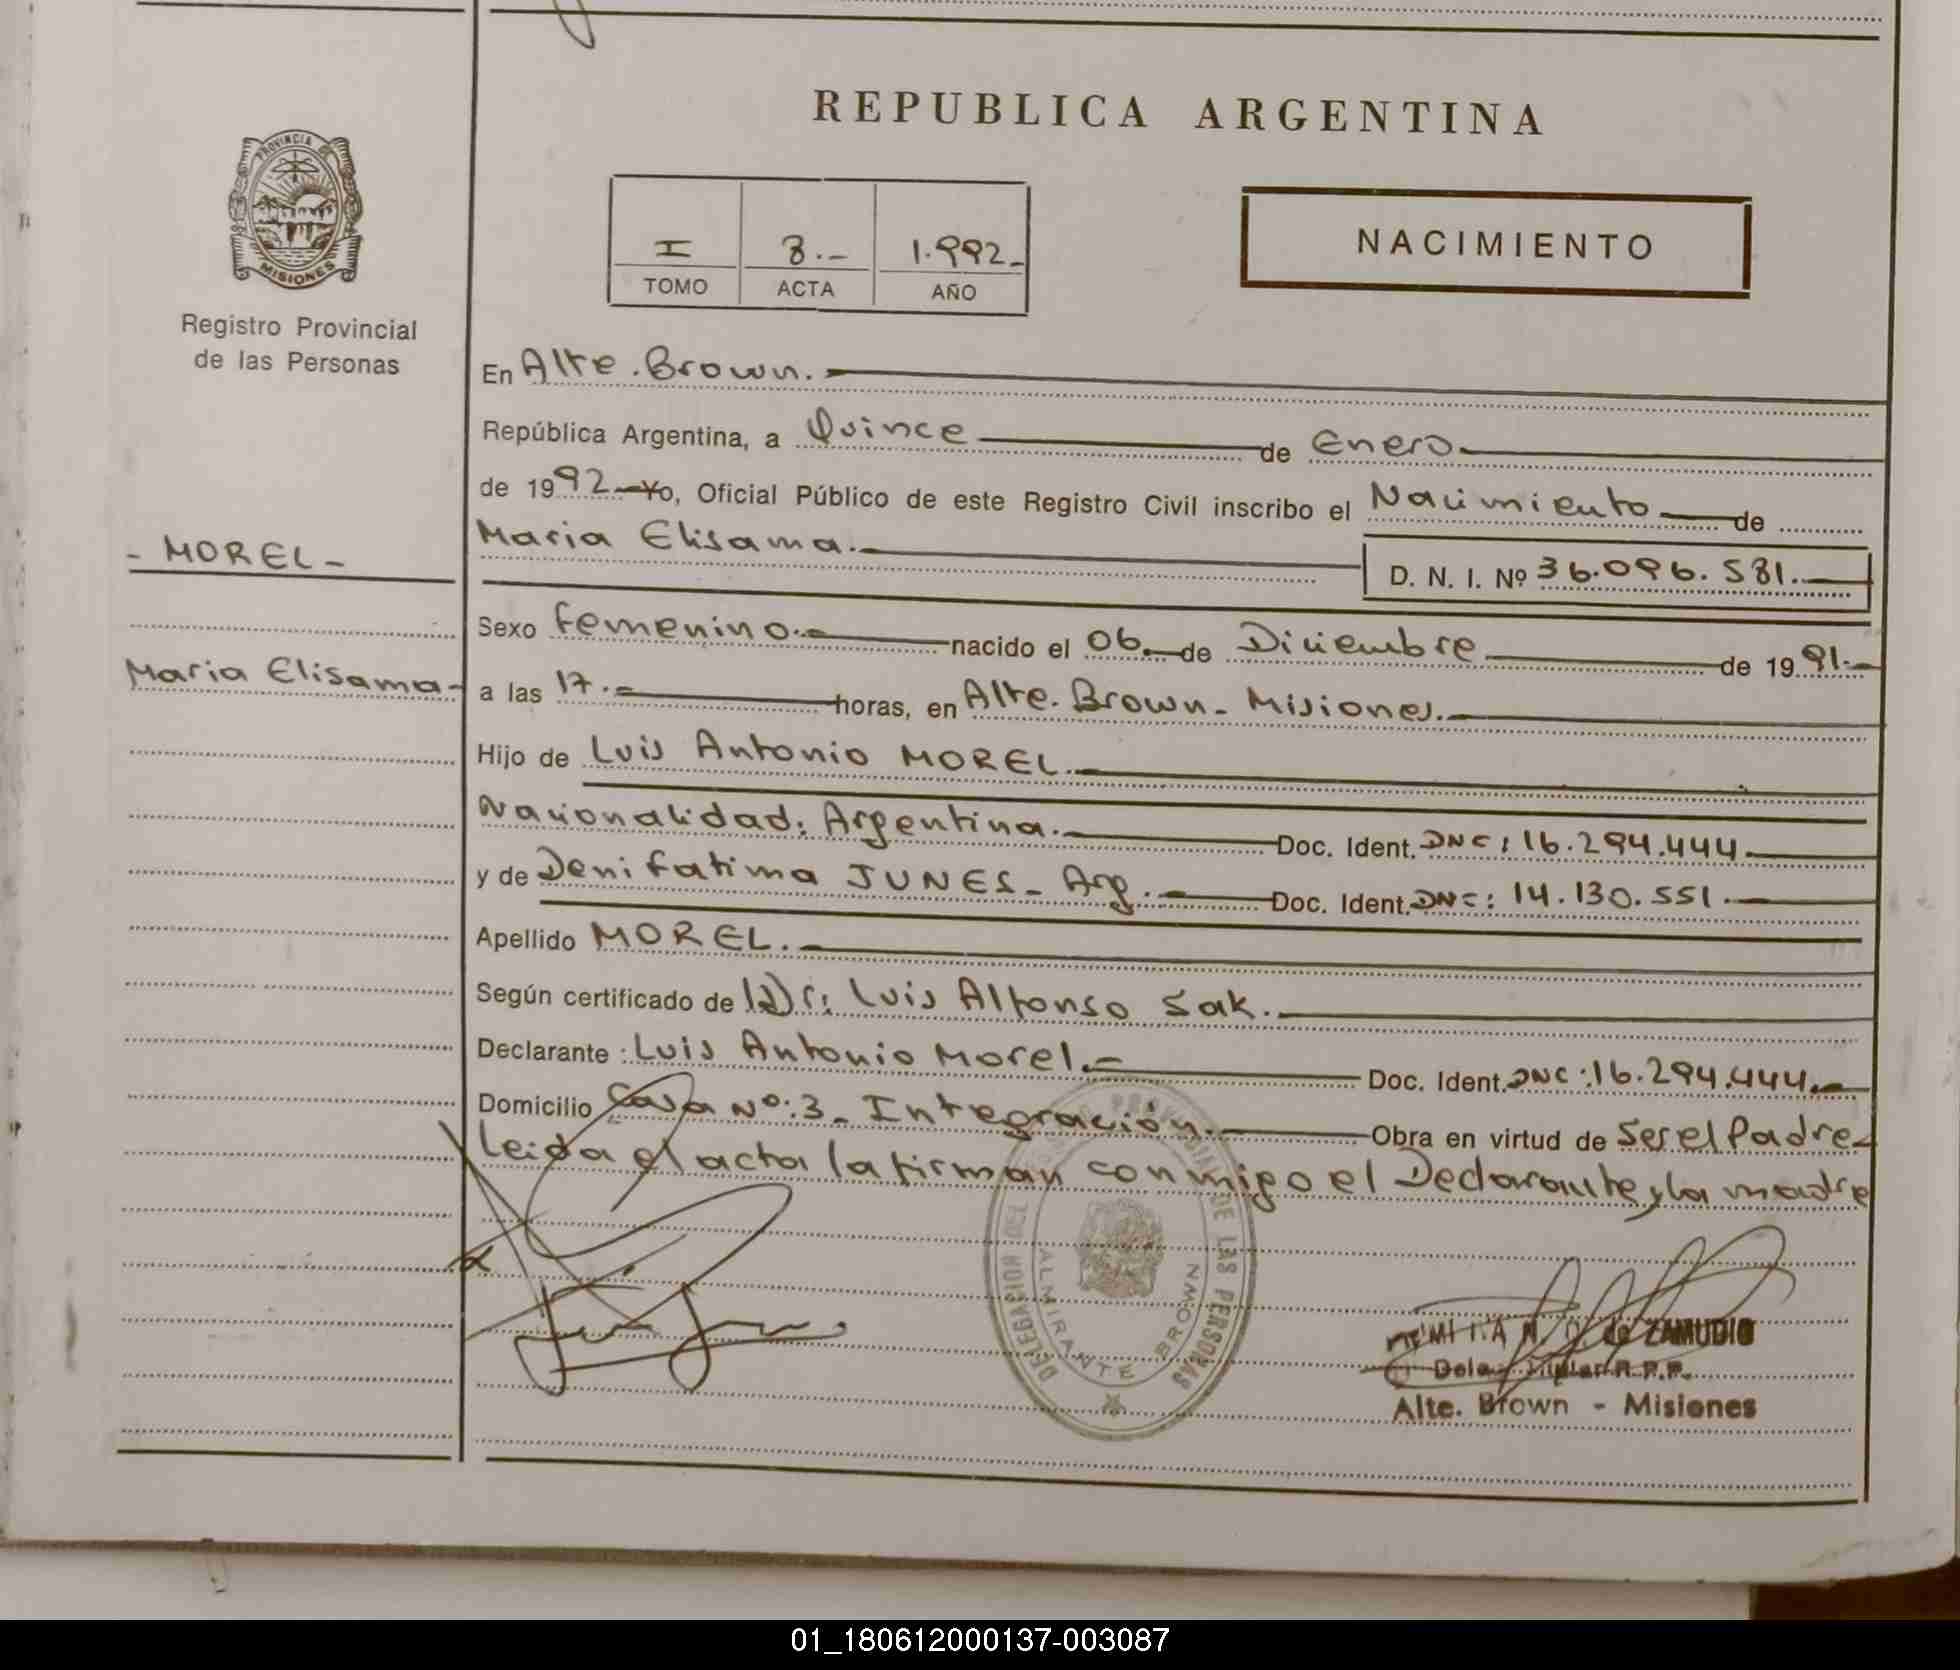 REPUBLICA ARGENTINA
PROVINCIA DE
MISIONES
Registro Provincial
de las Personas
I 3.- 1.992-
TOMO ACTA AÑO
NACIMIENTO
En Alte. Brown.
República Argentina, a Quince de Enero
de 1992 Yo, Oficial Público de este Registro Civil inscribo el Nacimiento de
- MOREL -
Maria Elisama.
D. N. I. Nº 36.096.581.
Sexo Femenino.- nacido el 06 de Diciembre de 1991.-
Maria Elisama-
a las 17.- horas, en Alte. Brown - Misiones.
Hijo de Luis Antonio MOREL.
Nacionalidad: Argentina. Doc. Ident. DNI: 16.294.444
y de Deni Fatima JUNES - Arg. Doc. Ident. DNI: 14.130.551.
Apellido MOREL.
Según certificado de Dr: Luis Alfonso Sak.
Declarante: Luis Antonio Morel.- Doc. Ident. DNI: 16.294.444.
Domicilio Casa Nº: 3 - Integración. Obra en virtud de Ser el Padre-
Leida el acta la firman conmigo el Declarante y la madre
DELEGACION DEL REGISTRO PROVINCIAL DE LAS PERSONAS
ALMIRANTE BROWN
de ZAMUDIO
Deleg. Titular R.P.P.
Alte. Brown - Misiones
01_180612000137-003087